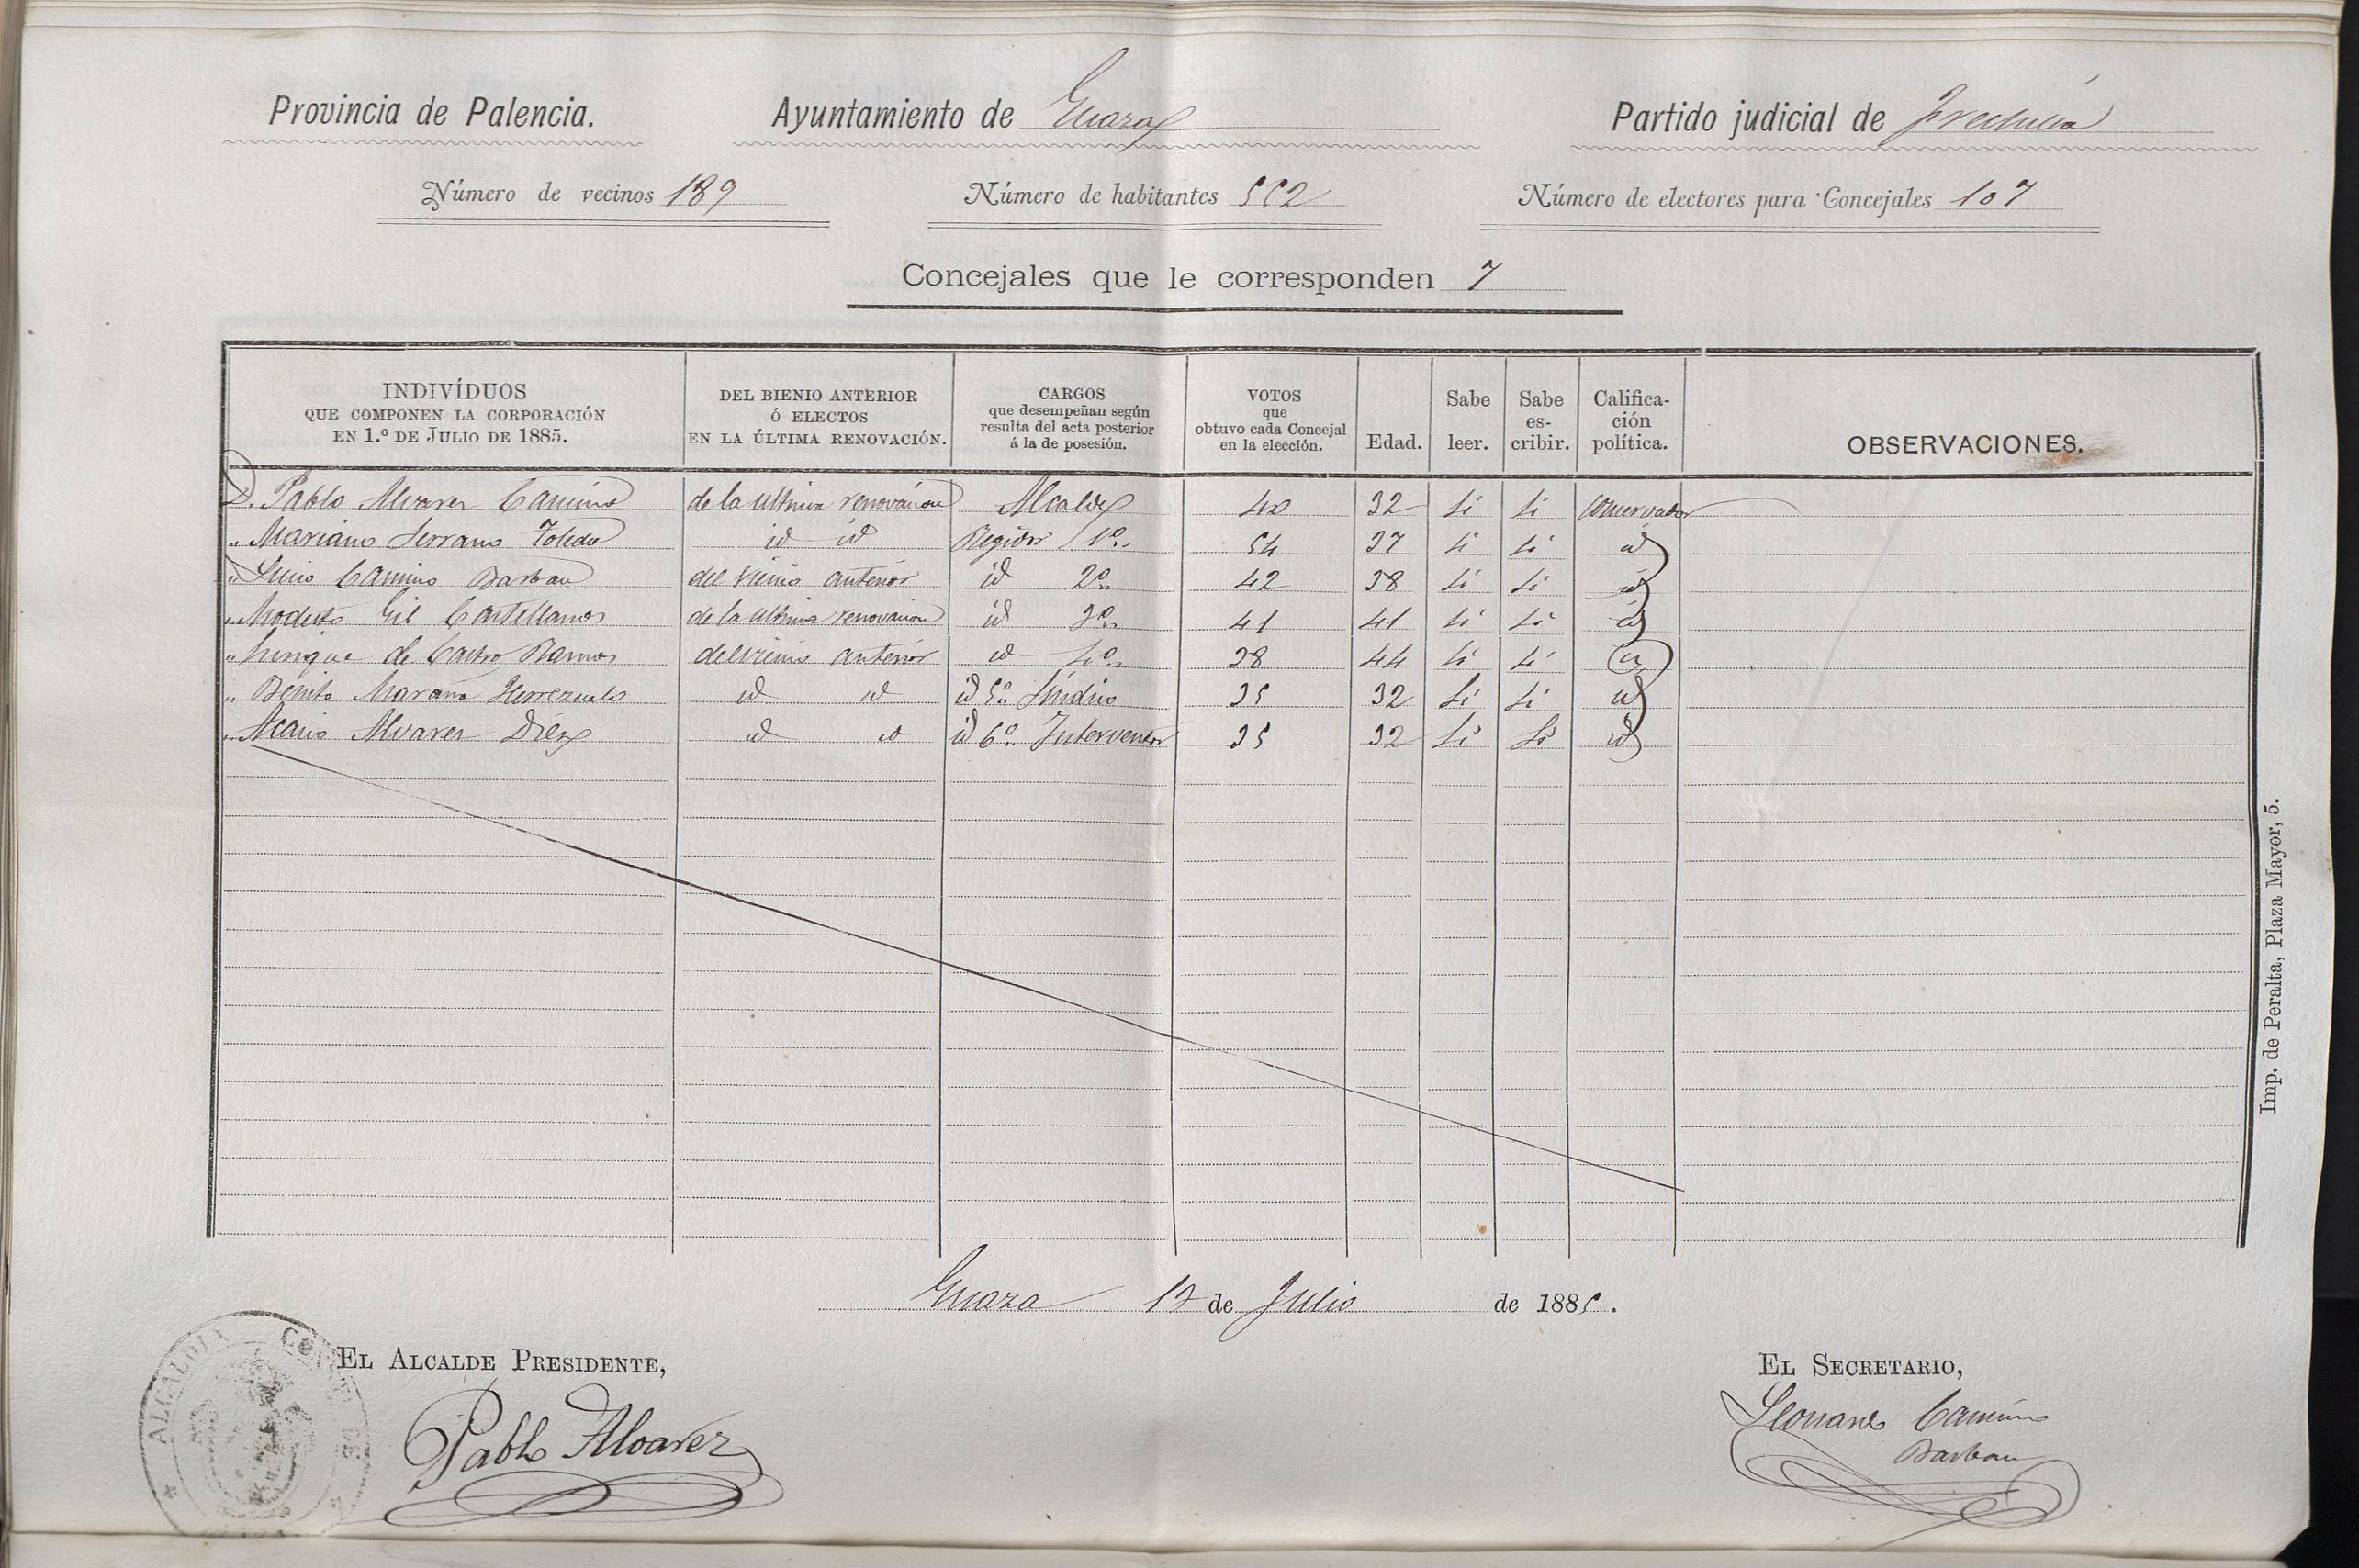 Provincia de Palencia. Ayuntamiento de Guaza Partido judicial de Frechilla
Número de vecinos 189 Número de habitantes 552 Número de electores para Concejales 107
Concejales que le corresponden 7
INDIVÍDUOS QUE COMPONEN LA CORPORACIÓN EN 1.º DE JULIO DE 1885. DEL BIENIO ANTERIOR Ó ELECTOS EN LA ÚLTIMA RENOVACIÓN. CARGOS que desempeñan según resulta del acta posterior á la de posesión. VOTOS que obtuvo cada Concejal en la elección. Edad. Sabe leer. Sabe es-cribir. Califica-ción política. OBSERVACIONES.
D. Pablo Alvarez Camino de la ultima renovacion Alcalde 40 32 Si Si Conservador
" Mariano Serrano Toledo id id Regidor 1º 54 37 Si Si id
" Lucio Camino Barban del vienio anterior id 2º 42 38 Si Si id
" Modesto Gil Castellanos de la ultima renovacion id 3º 41 41 Si Si id
" Enrique de Castro Ramos del vienio anterior id 4º 38 44 Si Si id
" Benito Maraña Herrezuelo id id id 5º Sindico 35 32 Si Si id
" Acacio Alvarez Diez id id id 6º Interventor 35 32 Si Si id
Guaza 12 de Julio de 1885.
EL ALCALDE PRESIDENTE, EL SECRETARIO,
Pablo Alvarez Leonardo Camino
Barban
ALCALDIA CONST. DE
Imp. de Peralta, Plaza Mayor, 5.